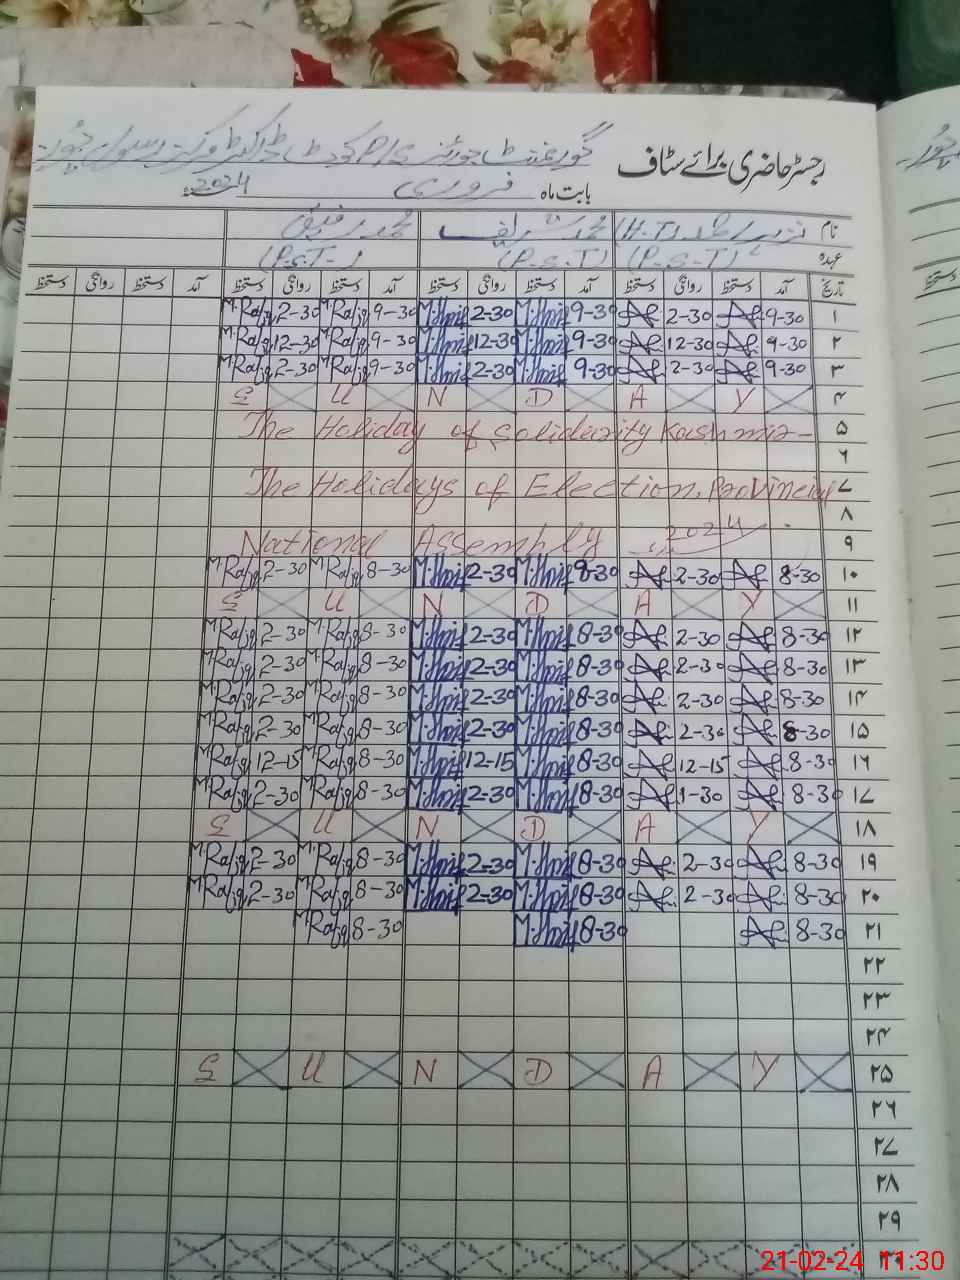 رجسٹر حاضری برائے سٹاف
گورنمنٹ
بابت ماہ فروری 2024ء
نام (H.T) محمد شریف محمد رفیق
عہدہ (P.S.T) (P.S.T) (P.S.T)
تاریخ آمد دستخط روانگی دستخط آمد دستخط روانگی دستخط آمد دستخط روانگی دستخط آمد دستخط روانگی دستخط
۱ 9-30 2-30 9-30 M.Sharif 2-30 M.Sharif 9-30 M.Rafiq 2-30 M.Rafiq
۲ 9-30 12-30 9-30 M.Sharif 12-30 M.Sharif 9-30 M.Rafiq 12-30 M.Rafiq
۳ 9-30 2-30 9-30 M.Sharif 2-30 M.Sharif 9-30 M.Rafiq 2-30 M.Rafiq
۴ S U N D A Y
۵ The Holiday of Solidarity Kashmir
۶
۷ The Holidays of Election, Provincial
۸
۹ National Assembly 2024
۱۰ 8-30 2-30 8-30 M.Sharif 2-30 M.Sharif 8-30 M.Rafiq 2-30 M.Rafiq
۱۱ S U N D A Y
۱۲ 8-30 2-30 8-30 M.Sharif 2-30 M.Sharif 8-30 M.Rafiq 2-30 M.Rafiq
۱۳ 8-30 2-30 8-30 M.Sharif 2-30 M.Sharif 8-30 M.Rafiq 2-30 M.Rafiq
۱۴ 8-30 2-30 8-30 M.Sharif 2-30 M.Sharif 8-30 M.Rafiq 2-30 M.Rafiq
۱۵ 8-30 2-30 8-30 M.Sharif 2-30 M.Sharif 8-30 M.Rafiq 2-30 M.Rafiq
۱۶ 8-30 12-15 8-30 M.Sharif 12-15 M.Sharif 8-30 M.Rafiq 12-15 M.Rafiq
۱۷ 8-30 1-30 8-30 M.Sharif 2-30 M.Sharif 8-30 M.Rafiq 2-30 M.Rafiq
۱۸ S U N D A Y
۱۹ 8-30 2-30 8-30 M.Sharif 2-30 M.Sharif 8-30 M.Rafiq 2-30 M.Rafiq
۲۰ 8-30 2-30 8-30 M.Sharif 2-30 M.Sharif 8-30 M.Rafiq 2-30 M.Rafiq
۲۱ 8-30 8-30 M.Sharif 8-30 M.Rafiq
۲۲
۲۳
۲۴
۲۵ S U N D A Y
۲۶
۲۷
۲۸
۲۹
21-02-24 11:30